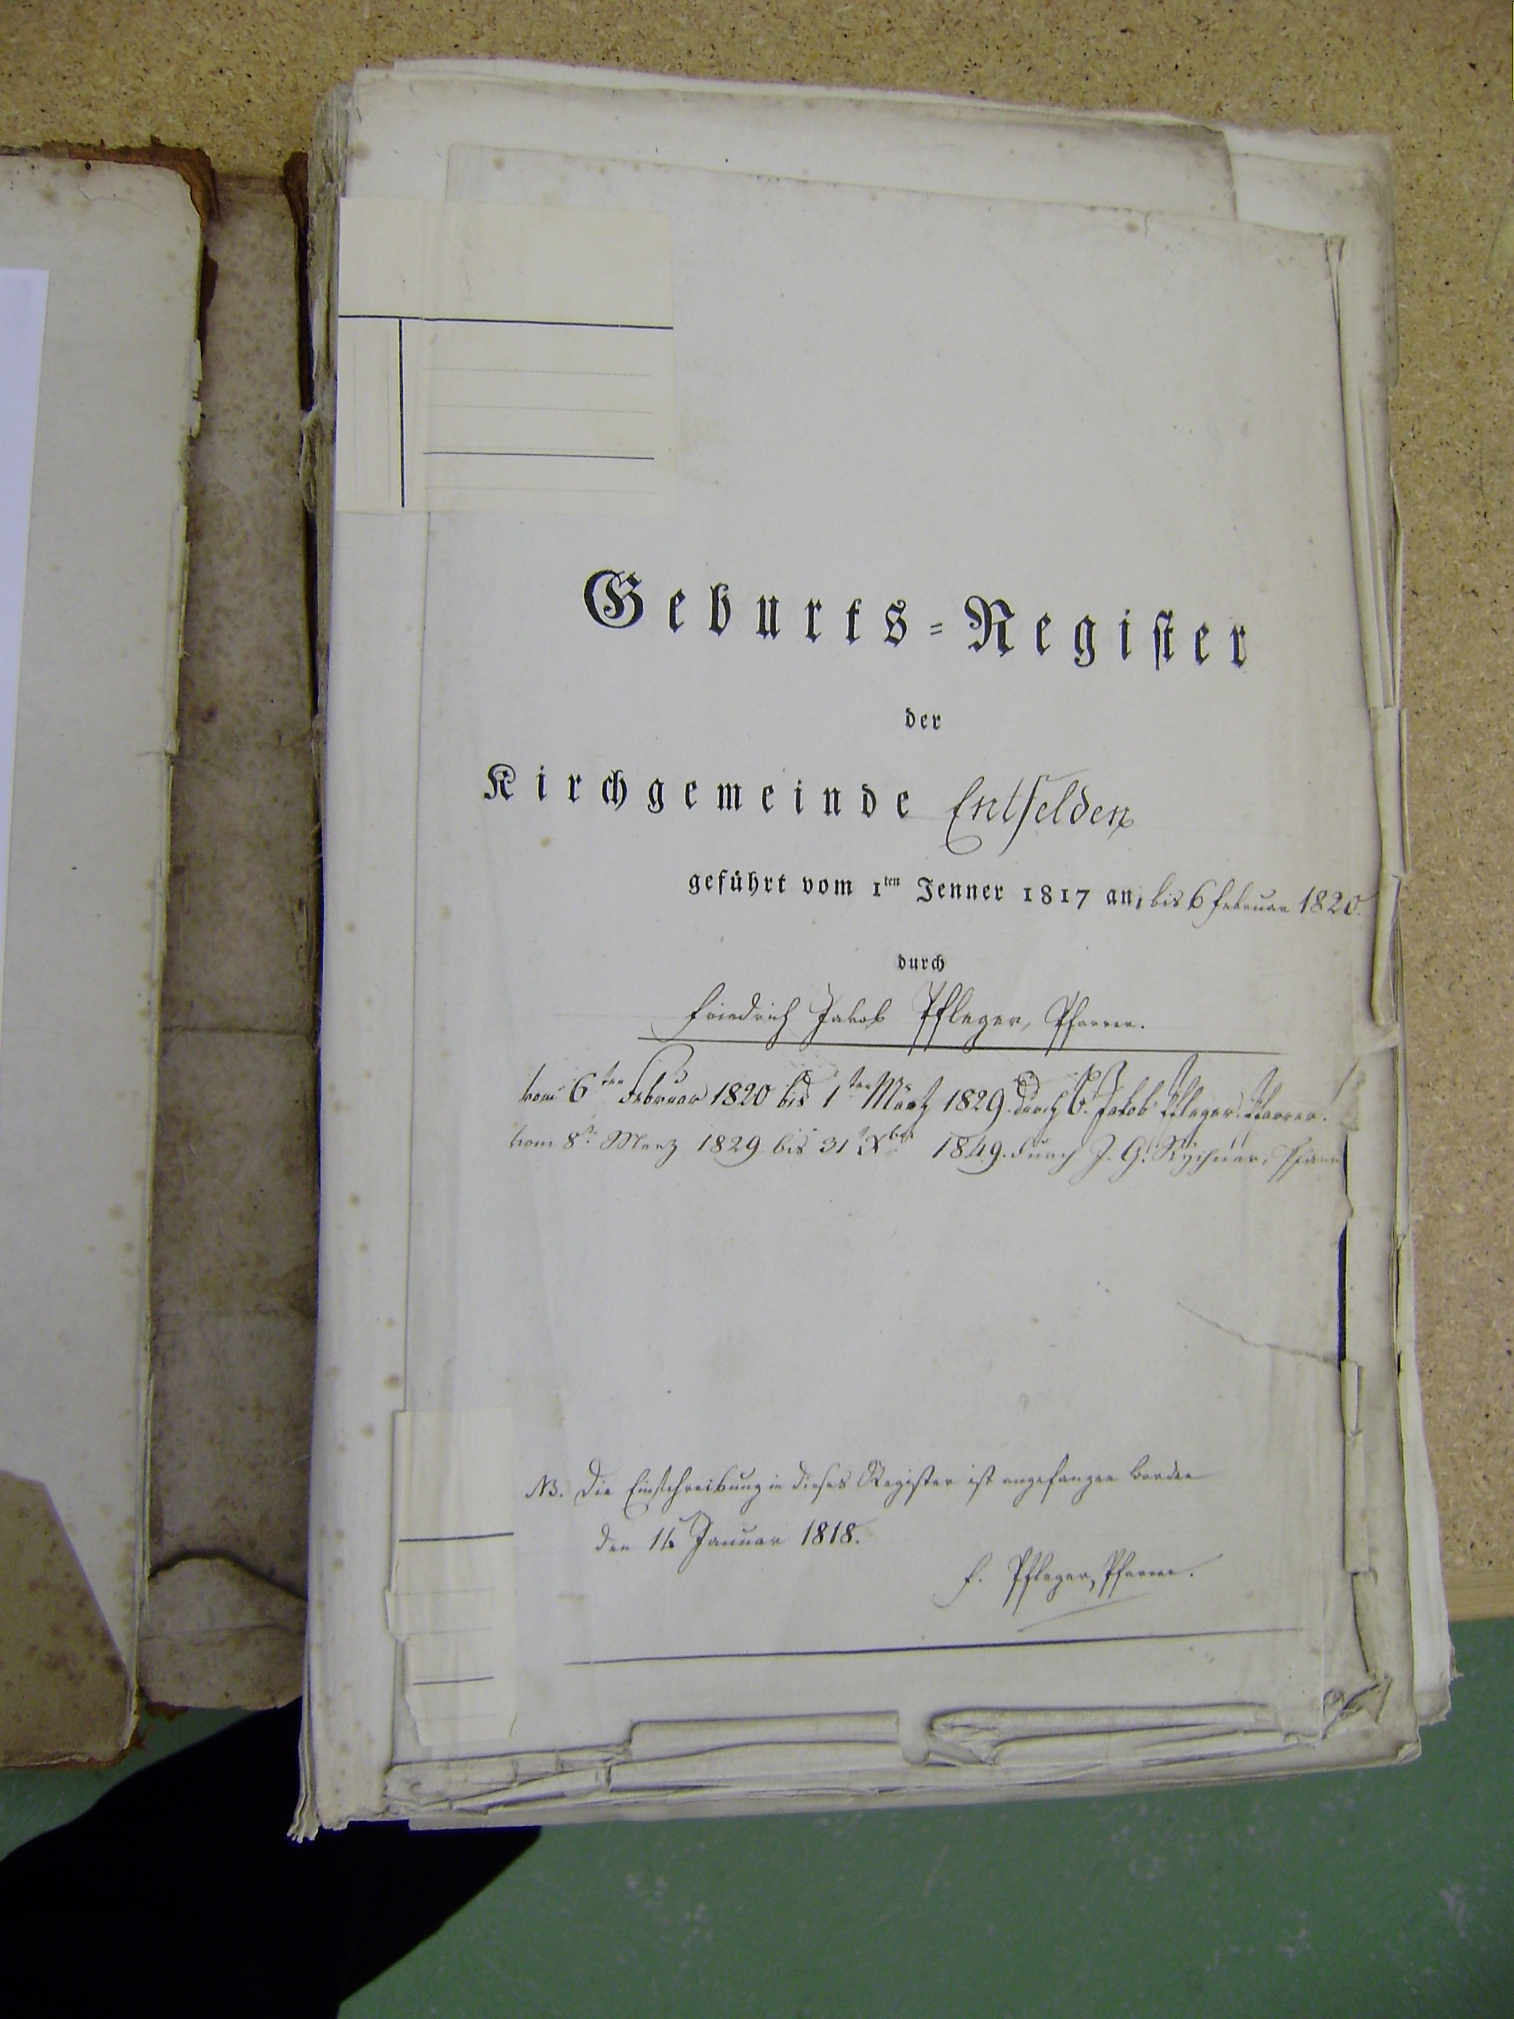 Geburts-Register
der
Kirchgemeinde Entfelden
geführt vom 1ten Jenner 1817 an, bis 6 Februar 1820.
durch
Friedrich Jakob Pfleger, Pfarrer.
vom 6ten Februar 1820 bis 1ten Märtz 1829. durch Jakob Pfleger. Pfarrer.
vom 8t. Merz 1829 bis 31 Xbr 1849. durch J. G. Rychner, Pfarr
NB. Die Einschreibung in dieses Register ist angefangen worden
den Januar 1818.
F. Pfleger, Pfarrer.